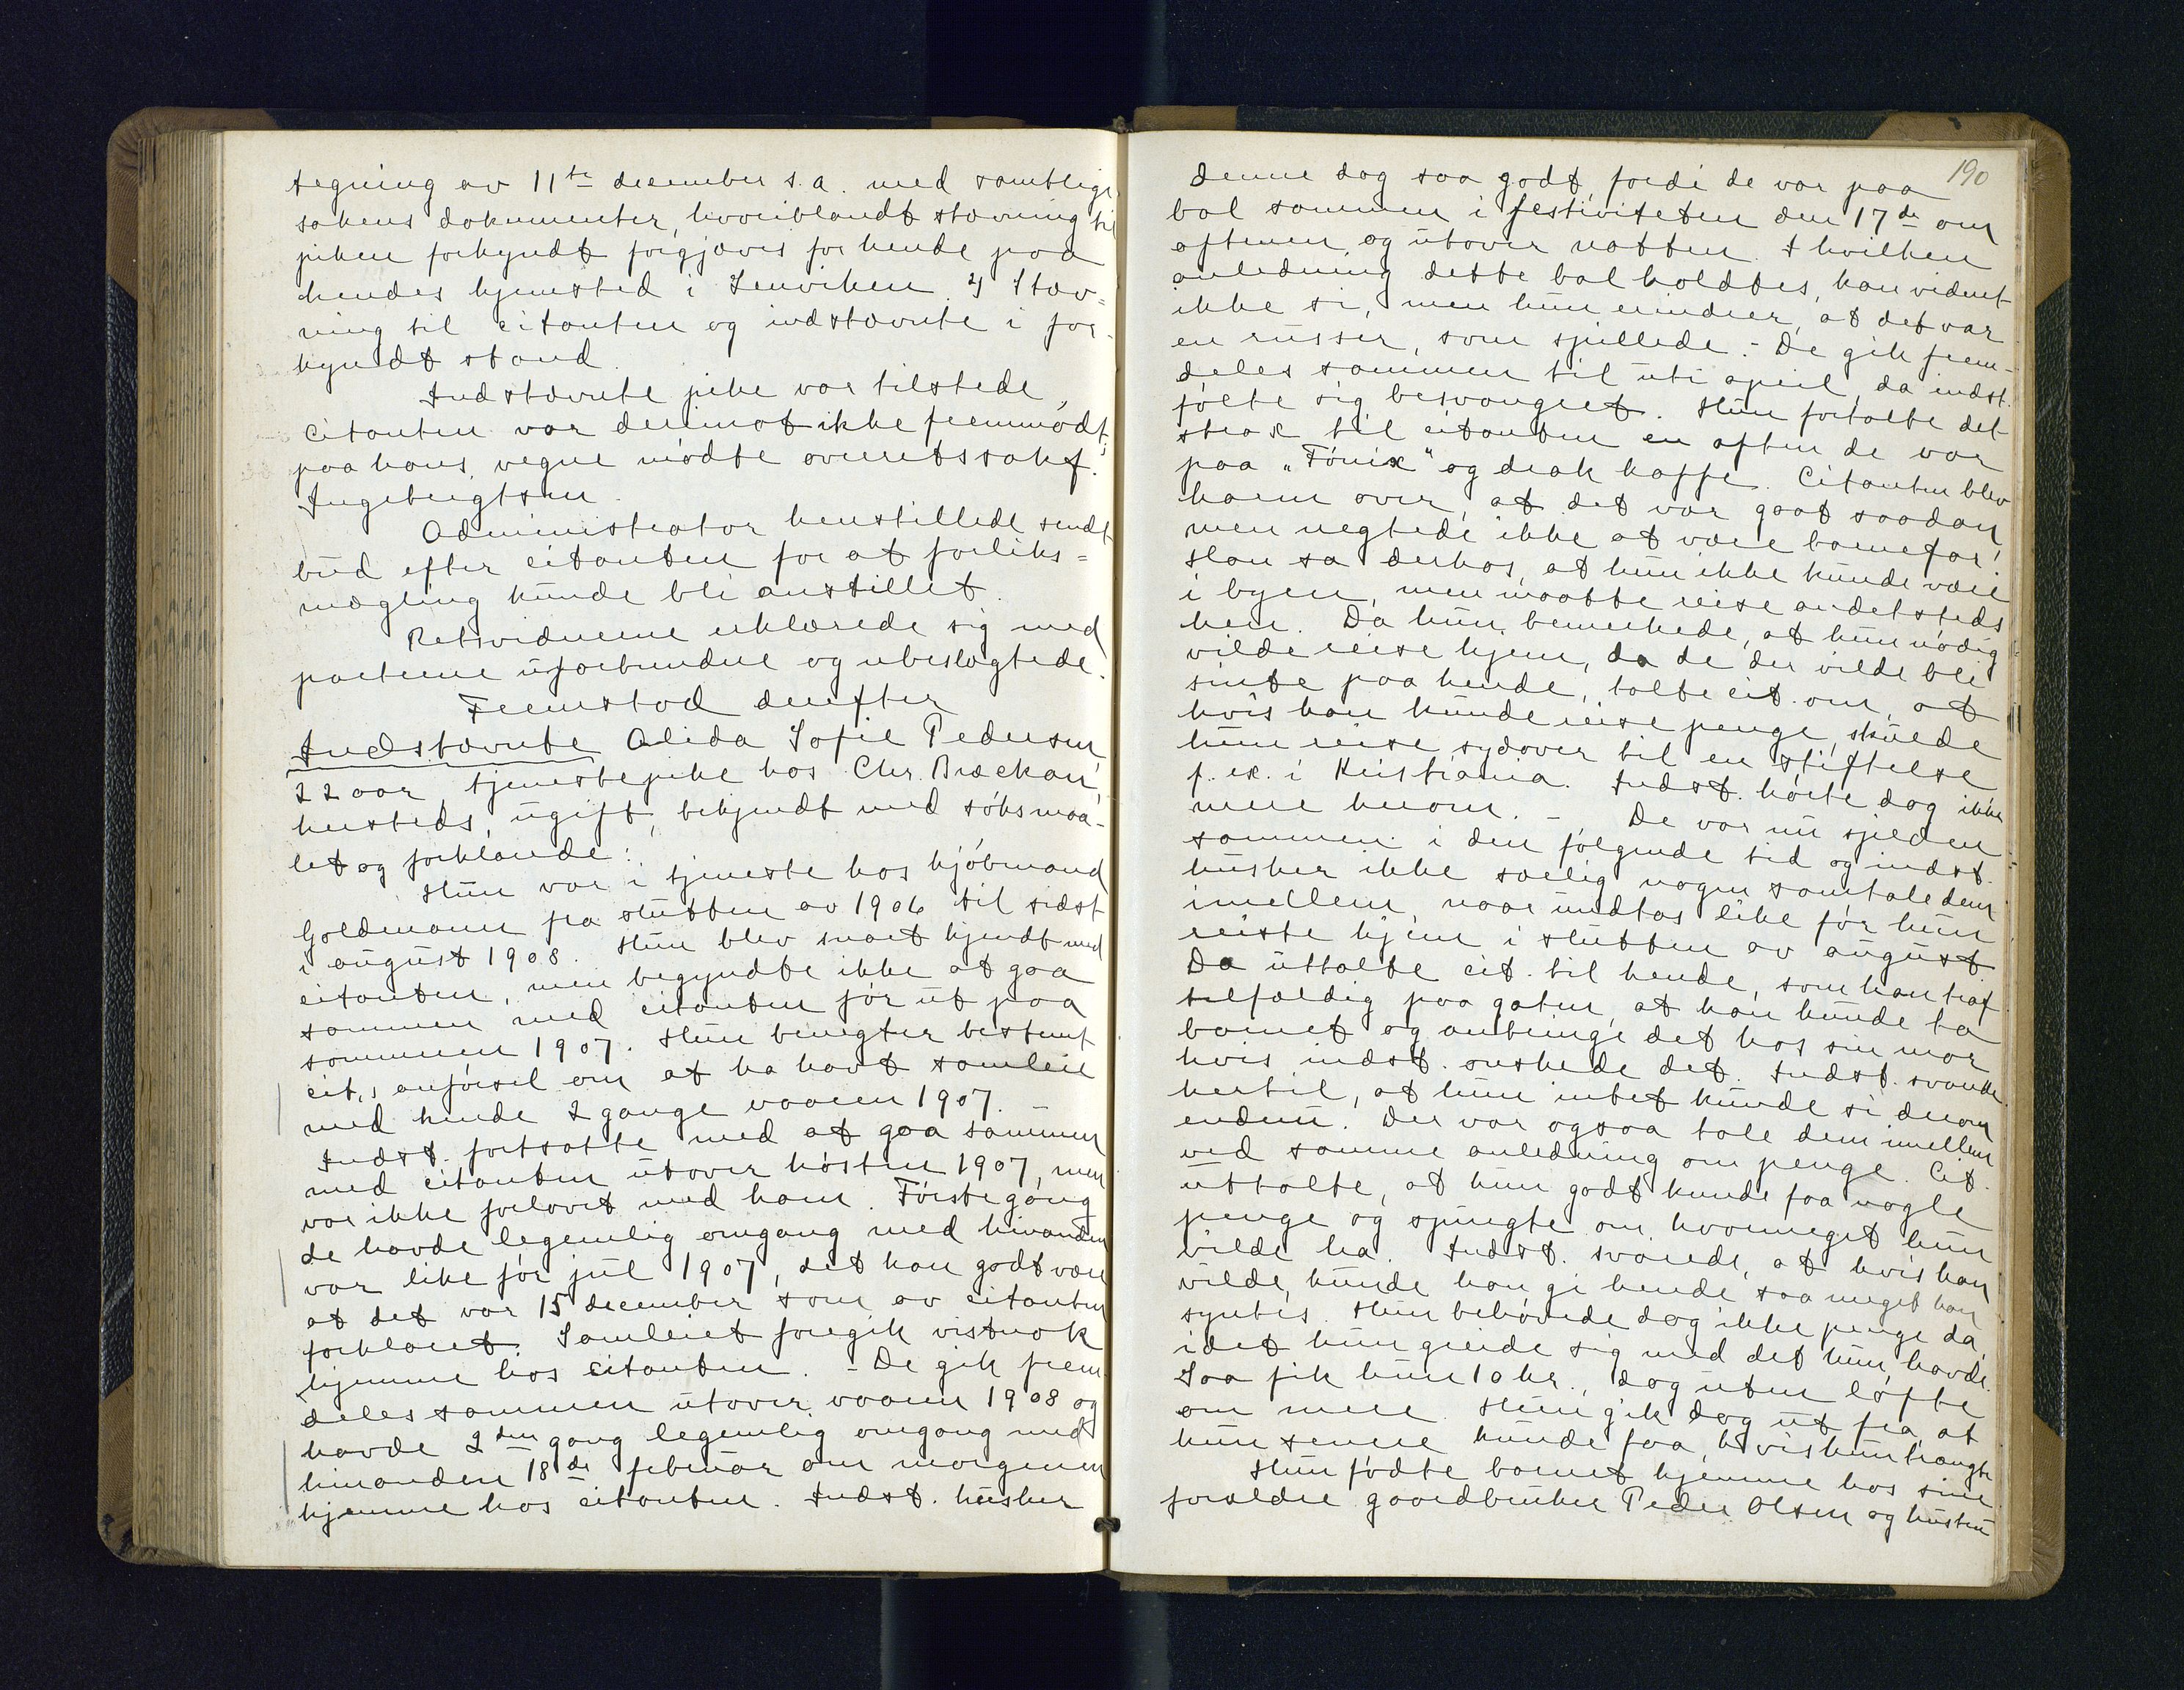 tegning av 11te december s.a. med samtlige
sakens dokumenter, hvoriblandt stævning til
piken forkyndt forgjæves for hende paa
hendes hjemsted i Lenviken. 4) Stæv-
ning til citanten og indstævnte i for-
kyndt stand.
Indstævnte pike var tilstede,
citanten var derimot ikke fremmødt;
paa hans vegne mødte overretssakf.
Ingebrigtsen.
Administrator henstillede sendt
bud efter citanten for at forliks=
mægling kunde bli anstillet.
Retsvidnerne erklærede sig med
parterne uforbundne og ubeslægtede.
Fremstod derefter
Indstævnte Alida Sofie Pedersen,
22 aar, tjenestepike hos Chr. Dreckan,
hersteds, ugift, bekjendt med søksmaa-
let og forklarede:
Hun var i tjeneste hos kjøbmand
Goldmann fra slutten av 1906 til sidst
i august 1908. Hun blev snart kjendt med
citanten, men begyndte ikke at gaa
sammen med citanten før ut paa
sommeren 1907. Hun benegter bestemt
cit,s anførsel om at ha havt samleie
med hende 2 gange vaaren 1907.
Indst. fortsatte med at gaa sammen
med citanten utover høsten 1907, men
var ikke forlovet med ham. Første gang
de havde legemlig omgang med hinanden
var like før jul 1907, det kan godt være
at det var 15 december som av citanten
forklaret. Samleiet foregik vistnok
hjemme hos citanten. - De gik frem-
deles sammen utover vaaren 1908 og
havde 2den gang legemlig omgang med
hinanden 18de februar om morgenen
hjemme hos citanten. Indst. husker
190
denne dag saa godt, fordi de var paa
bal sammen i festiviteten den 17de om
aftenen og utover natten. I hvilken
anledning dette bal holdtes, kan vidnet
ikke si, men hun erindrer, at det var
en russer, som spillede. - De gik frem-
deles sammen til uti april, da indst.
følte sig besvangret. Hun fortalte det
strax til citanten en aften de var
paa "Fønix" og drak kaffe. Citanten blev
harm over, at det var gaat saadan,
men negtede ikke at være barnefar.
Han sa derhos, at hun ikke kunde være
i byen, men maatte reise andetsteds
hen. Da hun bemerkede, at hun nødig
vilde reise hjem, da de der vilde bli
sinte paa hende, talte cit. om, at
hvis han kunde reise penge, skulde
hun reise sydover til en stiftelse
f. ex. i Kristiania. Indst. hørte dog ikke
mere herom. - De var nu sjelden
sammen i den følgende tid og indst.
husker ikke særlig nogen samtale dem
imellem, naar undtas like før hun
reiste hjem i slutten av august.
Da uttalte cit. til hende, som han traf
tilfældig paa gaten, at han kunde ta
barnet og anbringe det hos sin mor
hvis indst. ønskede det. Indst. svarte
hertil, at hun intet kunde si derom
endnu. Der var ogsaa tale dem imellem
ved samme anledning om penge. Cit.
uttalte, at hun godt kunde faa nogle
penge og spurgte om, hvormeget hun
vilde ha. Indst. svarede, at hvis han
vilde, kunde han gi hende saa meget han
syntes. Hun behøvede dog ikke penge da,
idet hun greide sig med det hun havde.
Saa fik hun 10 kr., dog uten løfte
om mere. Hun gik dog ut fra, at
hun senere kunde faa, hvis hun trængte
Hun fødte barnet hjemme hos sine
forældre gaardbruker Peder Olsen og hustru